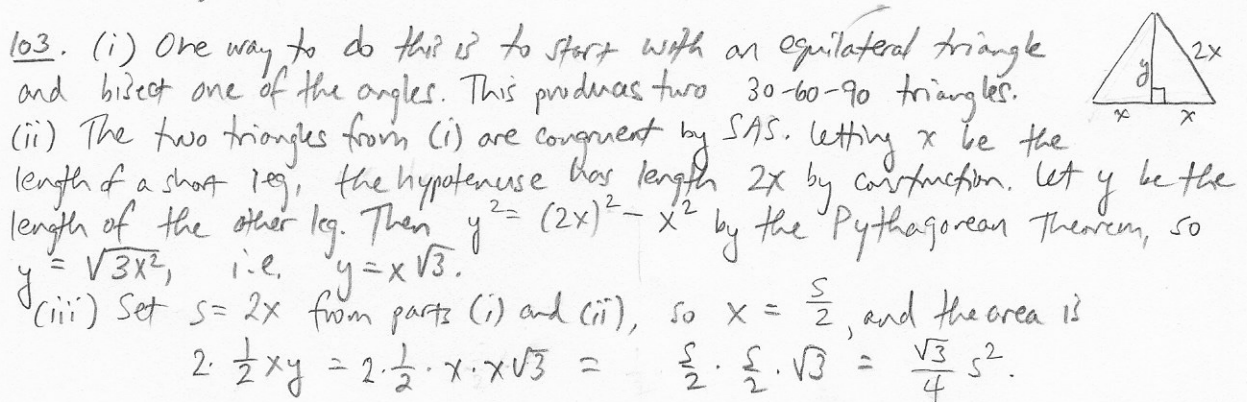 103. (i) One way to do this is to start with an equilateral triangle
and bisect one of the angles. This produces two 30-60-90 triangles.
(ii) The two triangles from (i) are congruent by SAS. Letting x be the
length of a short leg, the hypotenuse has length 2x by construction. Let y be the
length of the other leg. Then y² = (2x)² - x² by the Pythagorean Theorem, so
y = √3x², i.e. y = x√3.
(iii) Set s = 2x from parts (i) and (ii), so x = s/2, and the area is
2·1/2xy = 2·1/2·x·x√3 = s/2·s/2·√3 = √3/4 s².
2x
y
x x